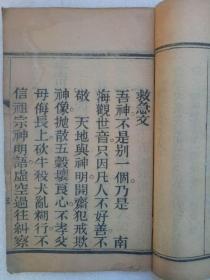 救急文
吾神不是别一個乃是　南
海觀世音只因凡人不好善不
敬　天地與神明開齋犯戒欺
神像抛散五穀壞良心不孝父
母侮長上砍牛殺犬亂糊行不
信祖宗神明語虛空過往糾察